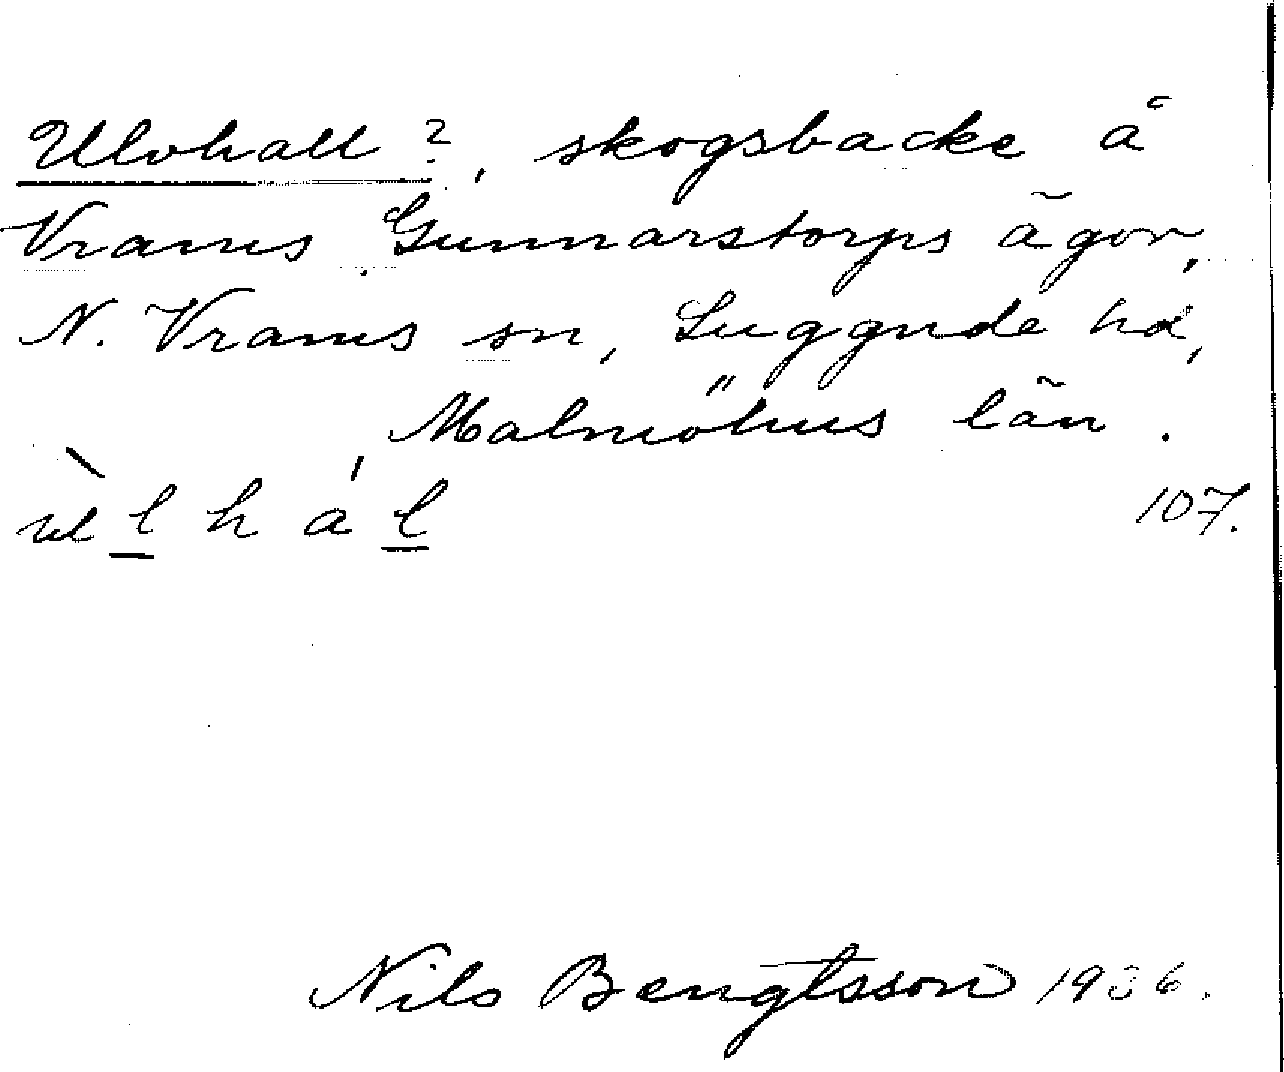 Ulvhall?, skogsbacke å
Vrams Gunnarstorps ägor,
N. Vrams sn, Luggude hd,
Malmöhus län.
ùl l h á l
107.
Nils Bengtsson 1936.